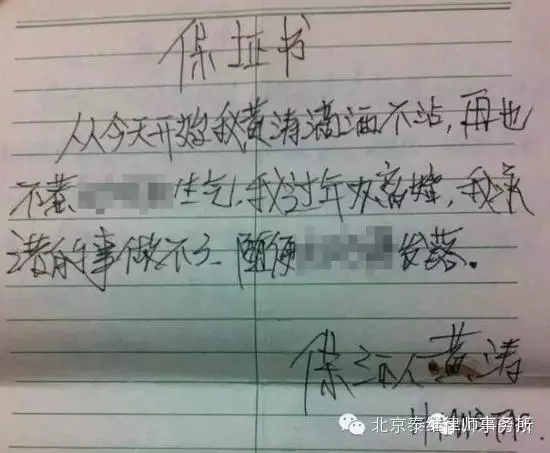 保证书
从从今天开始我黄涛滴酒不沾,再也
不惹 生气!我过年 离婚,我承
诺的事做不了 随便 发落。
保证人黄涛
北京泰维律师事务所